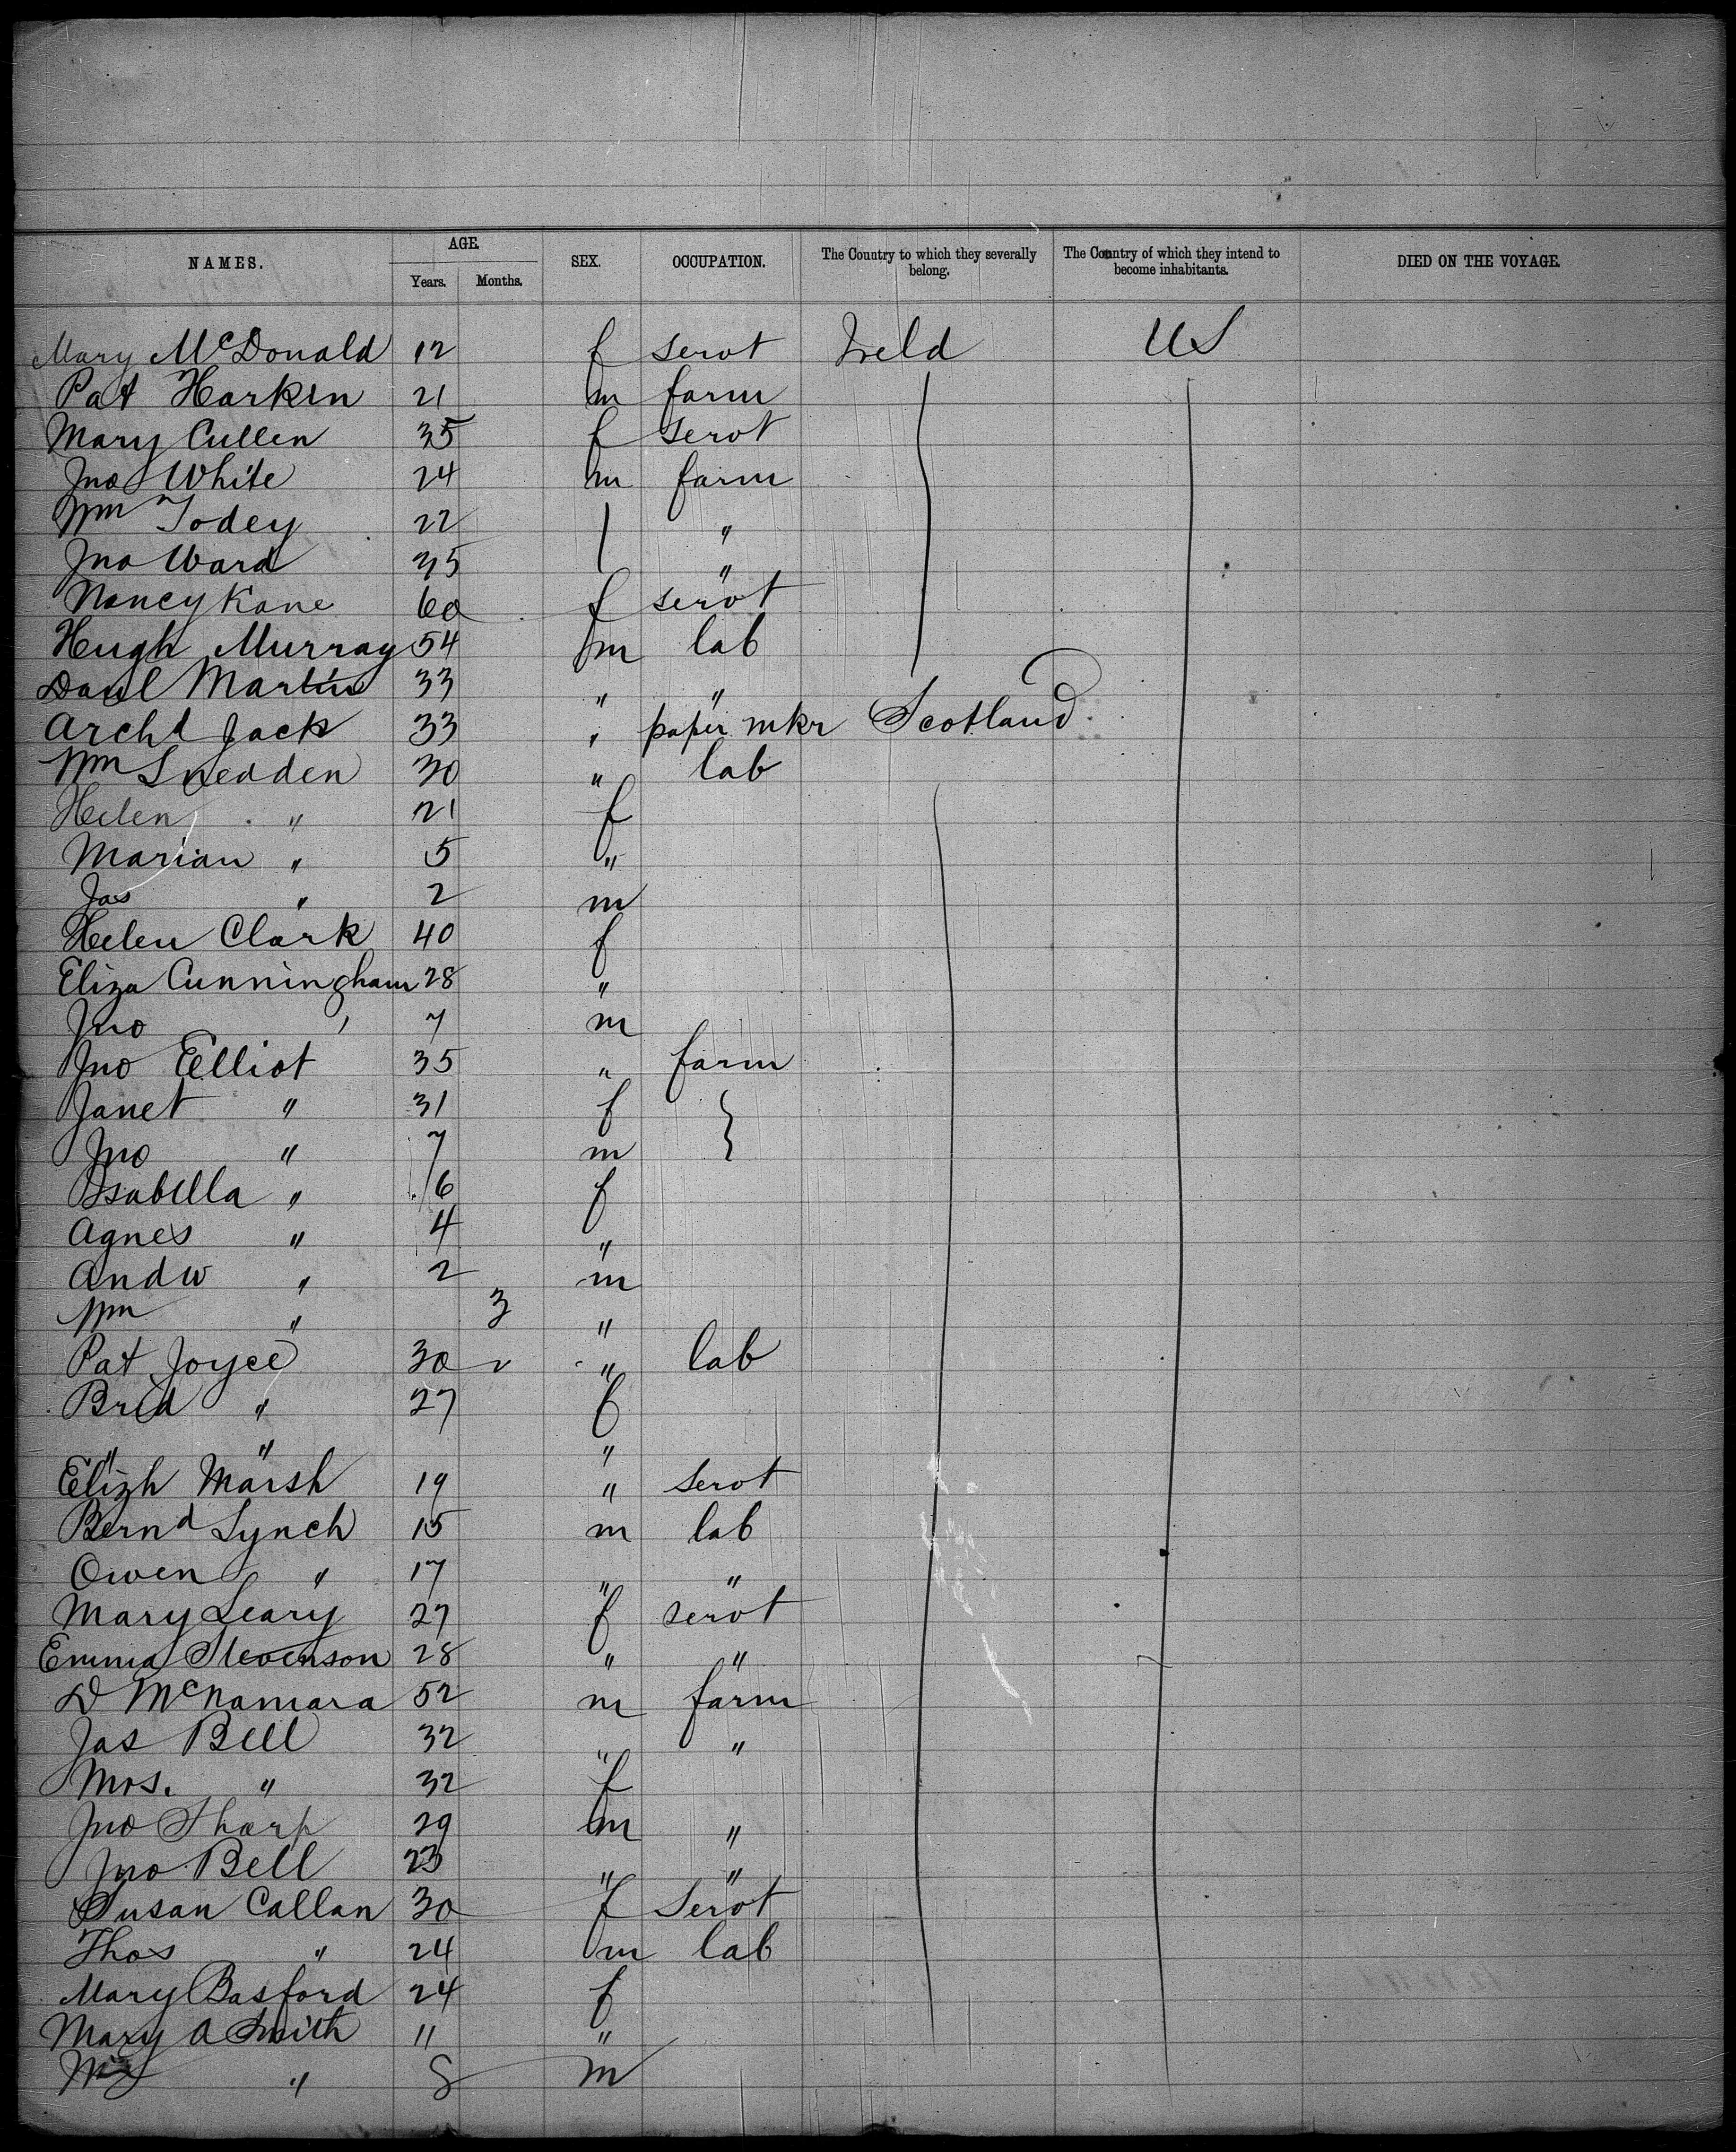 NAMES. AGE. SEX. OCCUPATION. The Country to which they severally belong. The Country of which they intend to become inhabitants. DIED ON THE VOYAGE.
Years. Months.
Mary McDonald 12 f servt Ireld US
Pat Harkin 21 m farm
Mary Cullen 35 f servt
Jno White 24 m farm
Wm Todey 22 "
Jno Ward 35 "
Nancy Kane 60 f servt
Hugh Murray 54 m lab
Danl Martin 33 " "
Archd Jack 33 " paper mkr Scotland
Wm Snedden 30 " lab
Helen " 21 f
Marian " 5 "
Jas " 2 m
Helen Clark 40 f
Eliza Cunningham 28 "
Jno " 7 m
Jno Elliot 35 " farm
Janet " 31 f }
Jno " 7 m
Isabella " 6 f
Agnes " 4 "
Andw " 2 m
Wm " 3 "
Pat Joyce 30 " lab
Brid " 27 f
" " "
Elizh Marsh 19 " servt
Bernd Lynch 15 m lab
Owen " 17 " "
Mary Leary 27 f servt
Emma Stevenson 28 " "
D McNamara 52 m farm
Jas Bell 32 " "
Mrs. " 32 f
Jno Sharp 29 m "
Jno Bell 23 " "
Susan Callan 30 f Servt
Thos " 24 m lab
Mary Basford 24 f
Mary A Smith 11 "
" 8 m